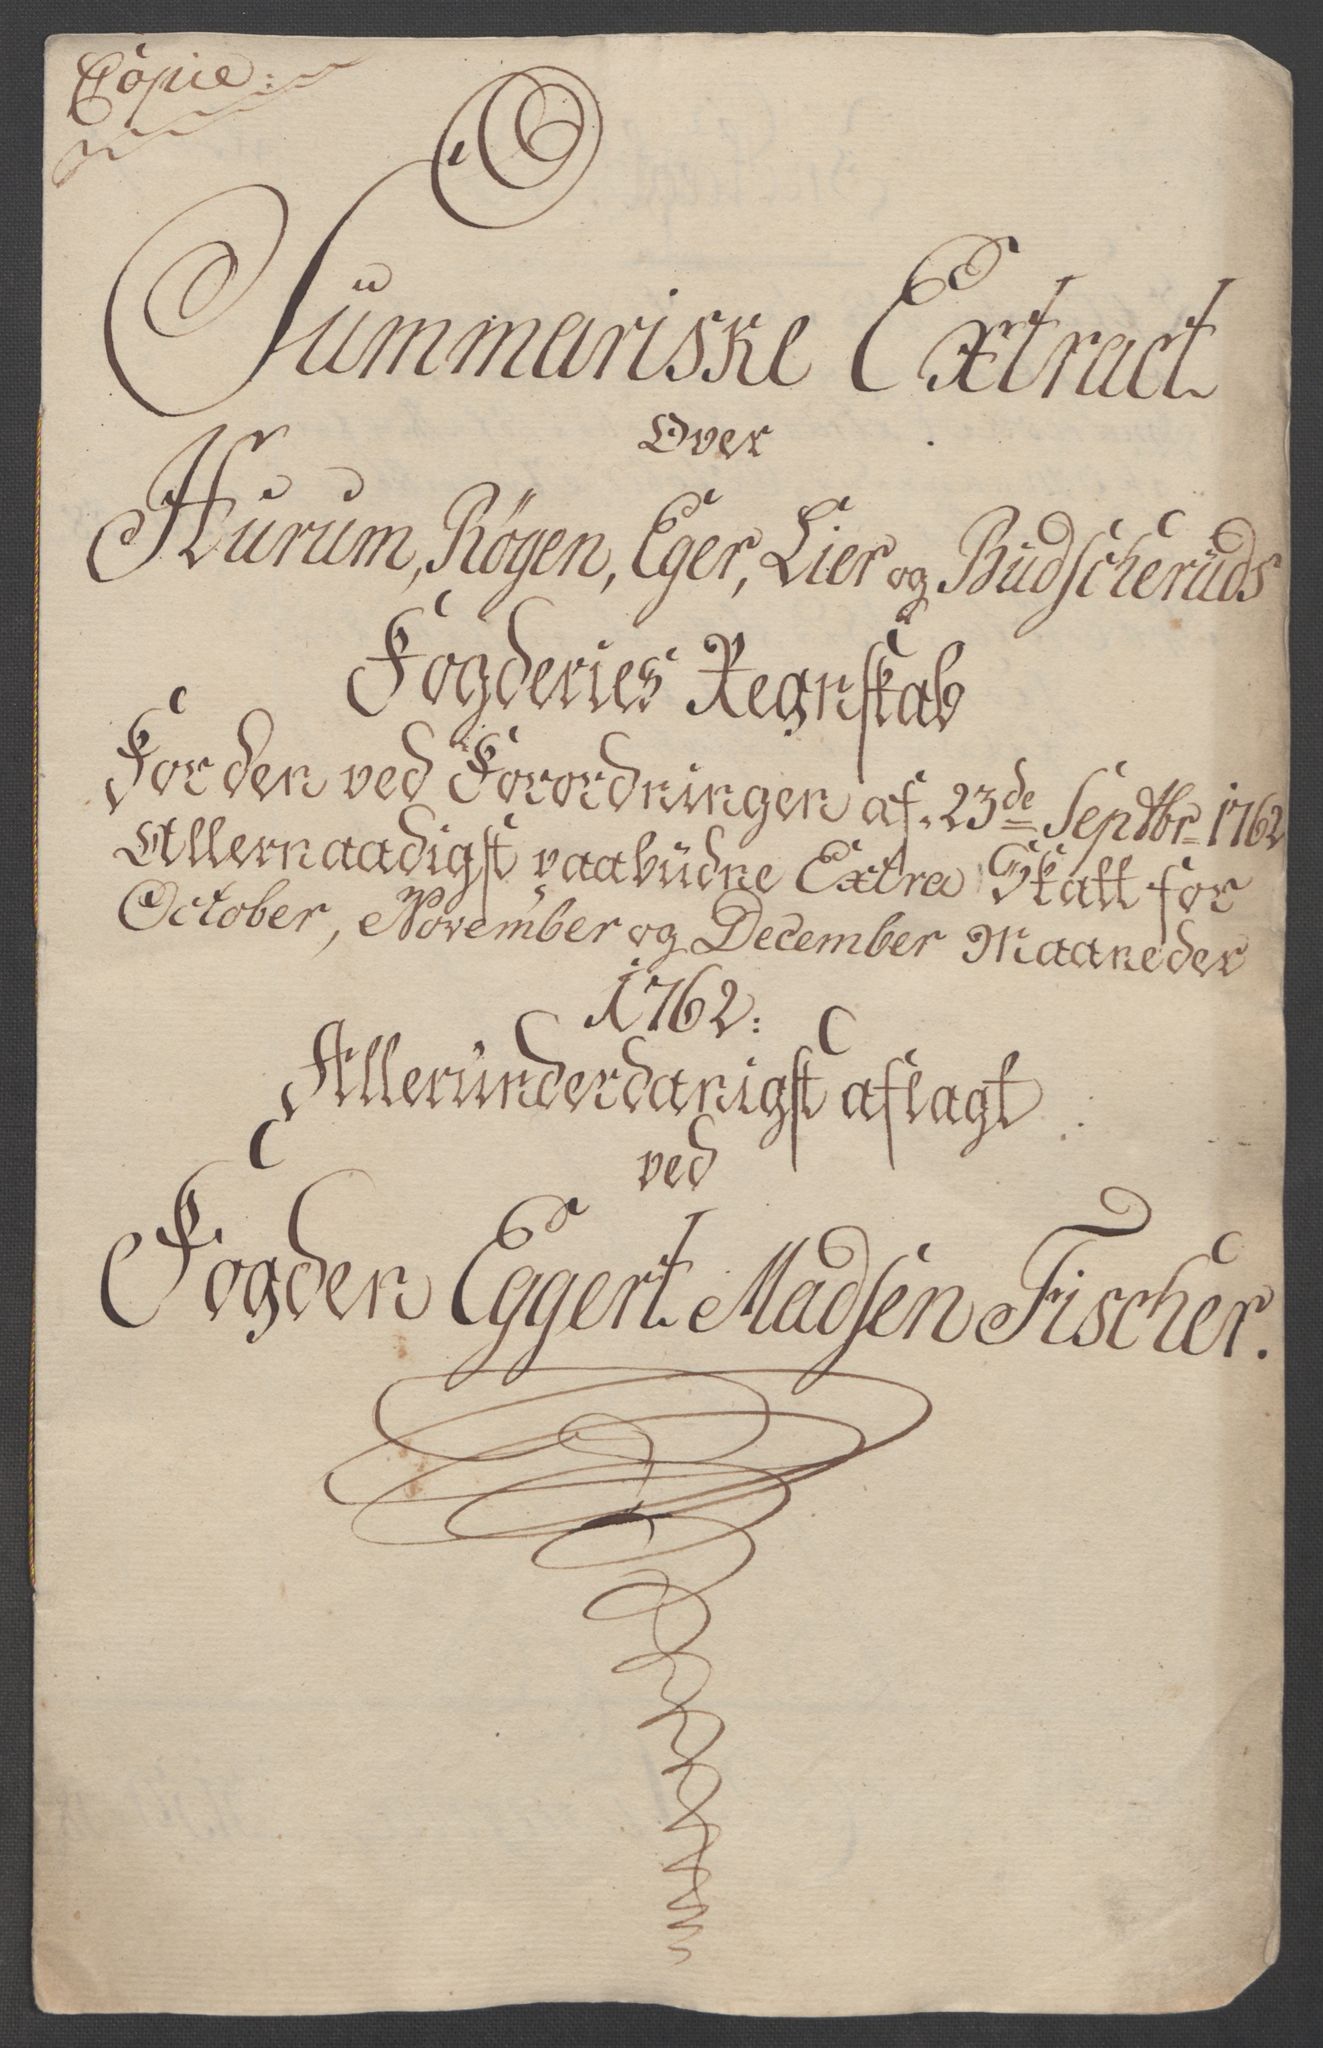 Copie:
Summariske Extract
Over
Hurum, Røgen, Eger, Lier og Büdscherüds
Fogderies Regnskab
For den ved Forordningen af 23de Septbr 1762
Allernaadigst paabüdne Extra Skatt for
October, November og December Maaneder
1762:
Alleründerdanigst aflagt
ved
Fogden Eggert Madsen Fischer.